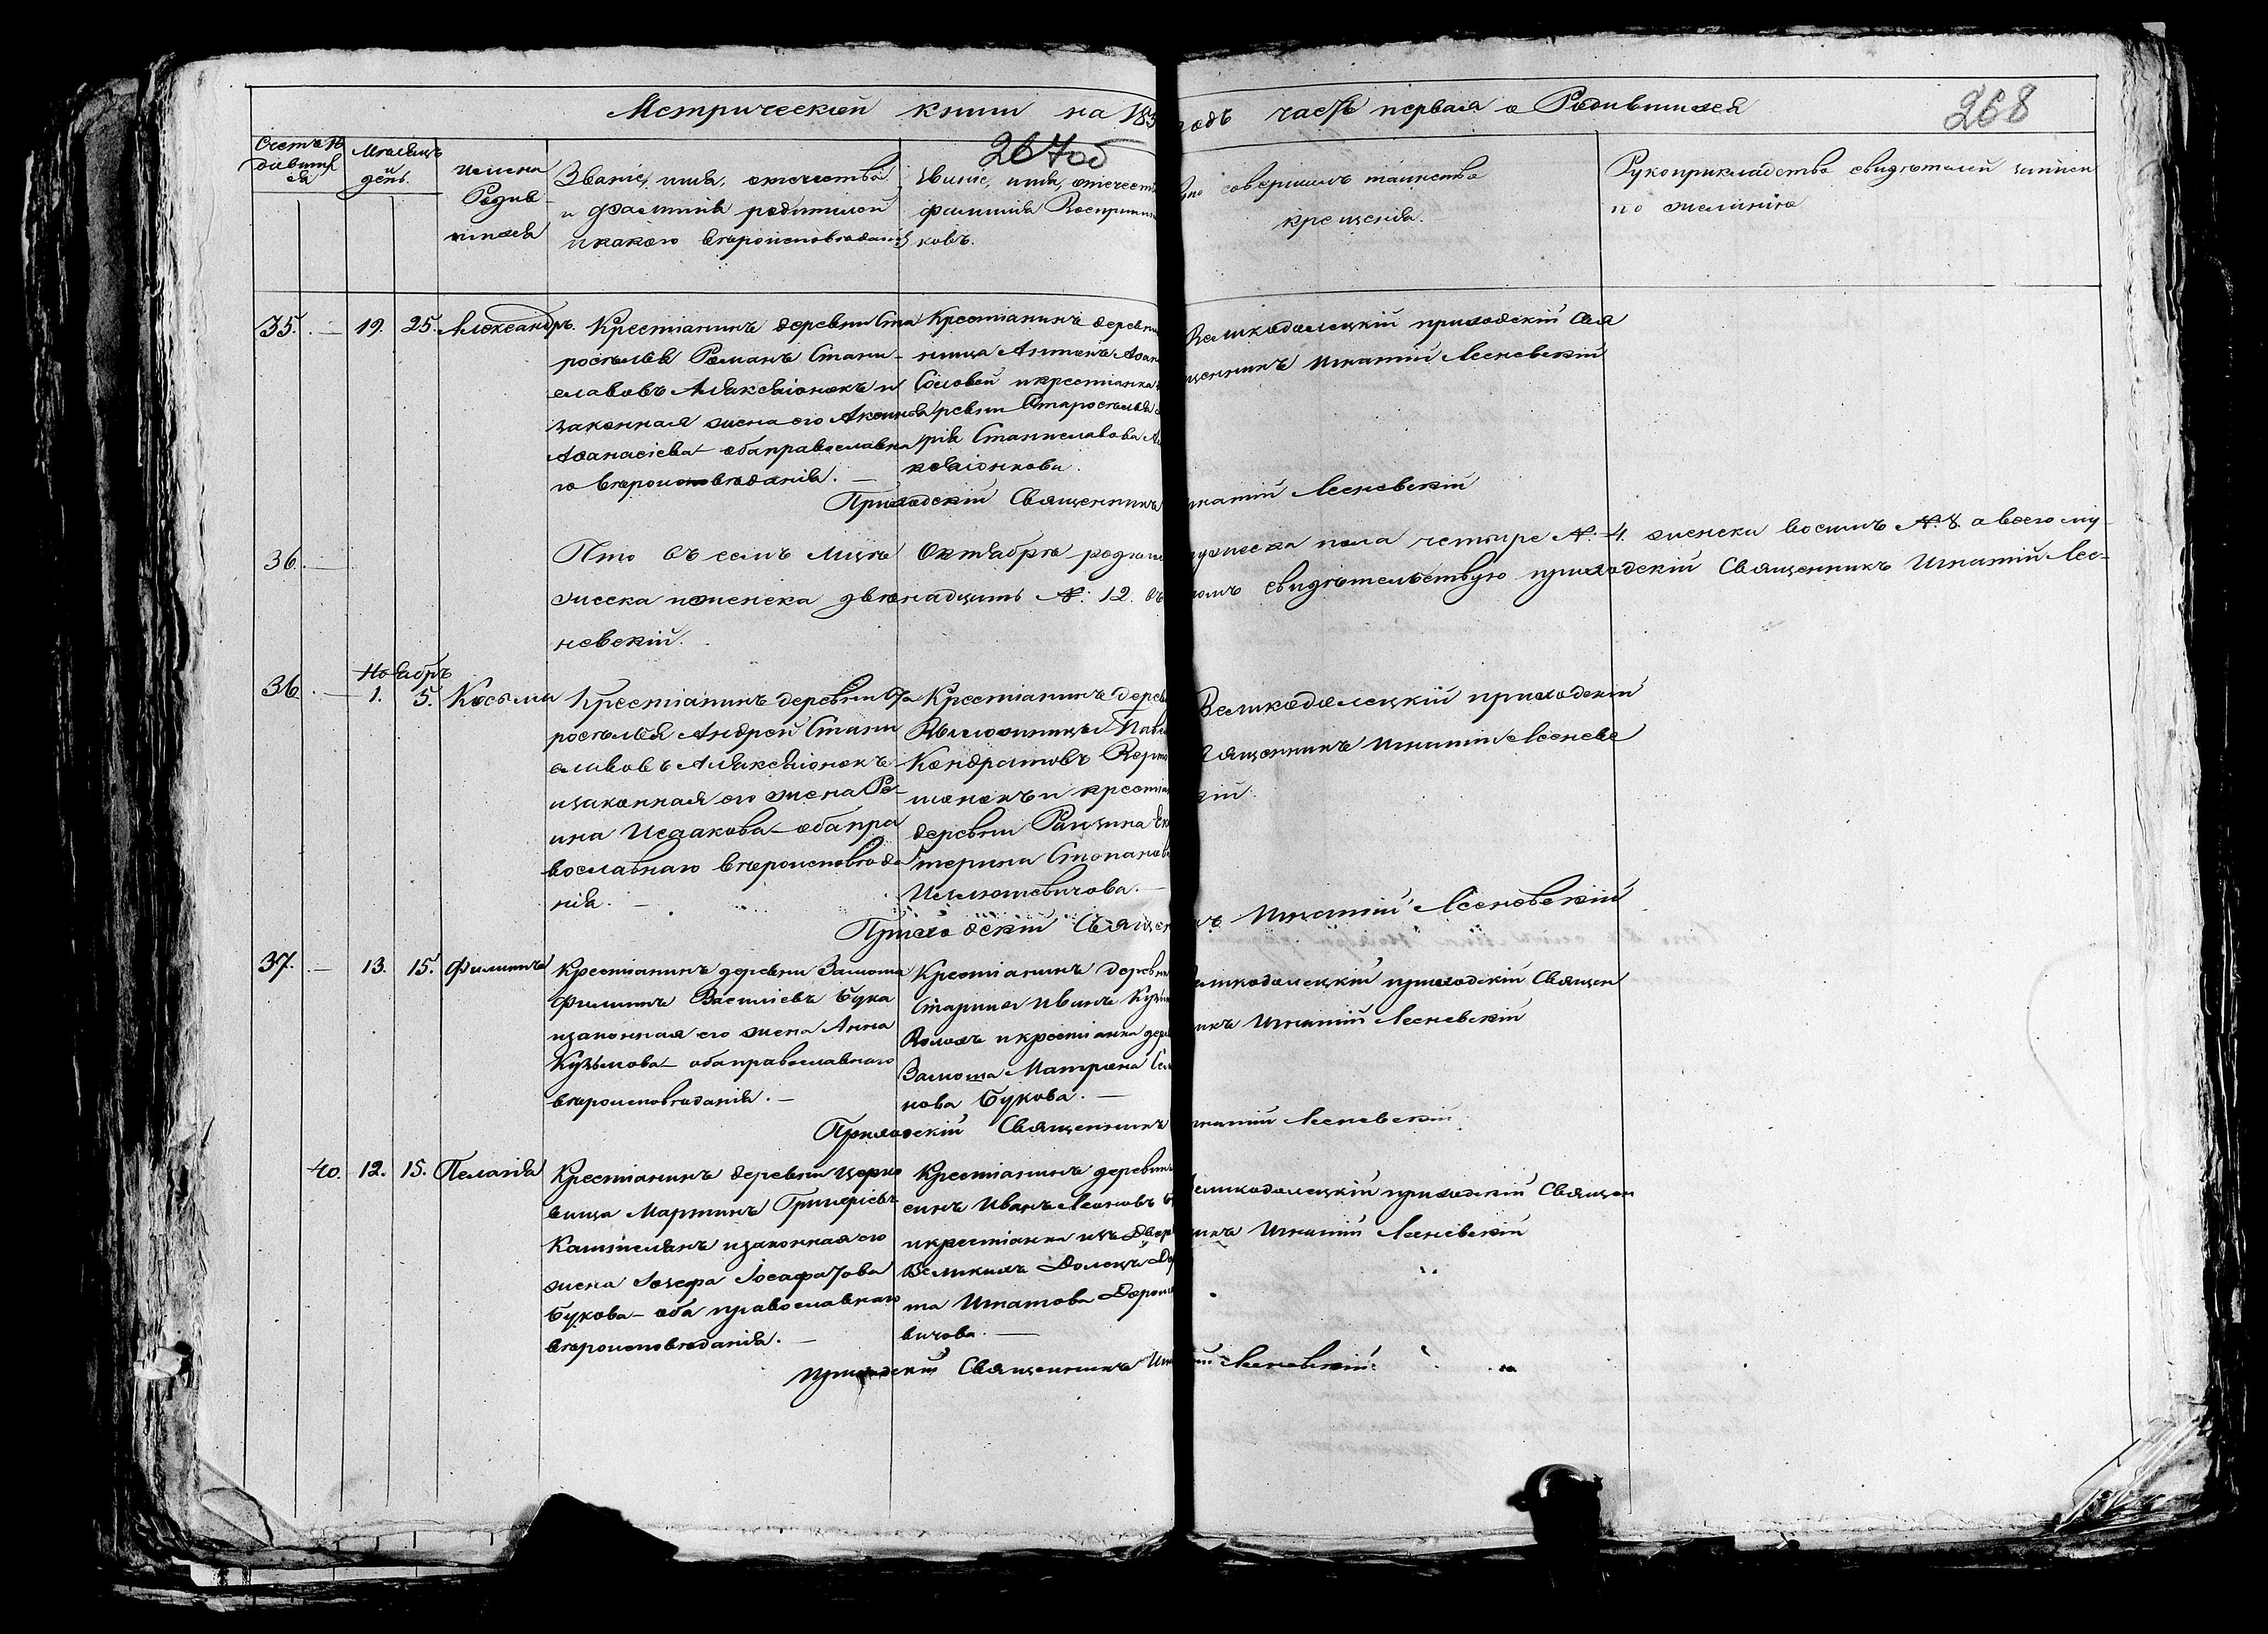 Метрической книги на 185 годъ часть первая о Родившихся
268
267об
Счетъ Ро
дивших
ся
Мѣсяцъ
и
день.
имена
Родив
шихся
Званіе, имя, отчество
и фамилія родителей
и какого вѣроисповѣданія
Званіе, имя, отчест
фамилія Воспріемни
ковъ.
Кто совершилъ таинство
крещенія.
Рукоприкладство свидѣтелей записи
по желанію
35. — 19. 25. Александръ.
Крестіанинъ деревни Ста
роселья Романъ Стани-
славовъ Аляксіонокъ и
законная жена его Аксинья
Аѳанасіева — оба православна
го вѣроисповѣданія. —
Крестіанинъ деревни
Антонъ
Соловей и крестіанка
ревни Староселья
рія Станиславова
ксіонкова.
Великодолецкій приходскій Свя
щенникъ Игнатій Лесневскій
Приходскій Священникъ гнатій Лесневскій
36. —
Что въ семъ мѣсяцѣ Октябрѣ родилось мужеска пола четыре №. 4. женска восемь №. 8. а всего му
жеска и женска двѣнадцать №: 12. въ томъ свидѣтельствую приходскій Священникъ Игнатій Лес-
невскій.
Ноябрь
36. — 1. 5. Косьма
Крестіанинъ деревни Ста
роселья Андрей Стани
славовъ Аляксіонокъ
и законная его жена Ре-
ина Исаакова — оба пра
вославнаго вѣроисповѣда
нія. —
Крестіанинъ дерев
Павел
Кондратовъ
и крестіан
деревни
терина Степанова
Великодолецкій приходскій
вященникъ Игнатій Лесневс
кій
Приходскій Священ ъ Игнатій Лесневскій
37. — 13. 15. Филиппъ
Крестіанинъ деревни Замоша
Филиппъ Василіевъ Бука
и законная его жена Анна
Кузьмова — оба православнаго
вѣроисповѣданія. —
Крестіанинъ деревни
Старина Иванъ Кузьм
Волохъ и крестіанка дерев
Замоша Матрона Сем
нова Букова. —
еликодолецкій приходскій Священ
икъ Игнатій Лесневскій
Приходскій Священникъ гнатій Лесневскій
40. 12. 15. Пелагія
Крестіанинъ деревни Церко
вища Мартинъ Григоріевъ
и законная его
жена Іозефа Іосафатова
Букова — оба православнаго
вѣроисповѣданія. —
Крестіанинъ деревни
Иванъ Леоновъ
и крестіанка изъ Двор
Великихъ Долецъ
та Игнатова
вичова. —
еликодолецкій приходскій Священ
никъ Игнатій Лесневскій
приходскій Священникъ Игн ій Лесневскій